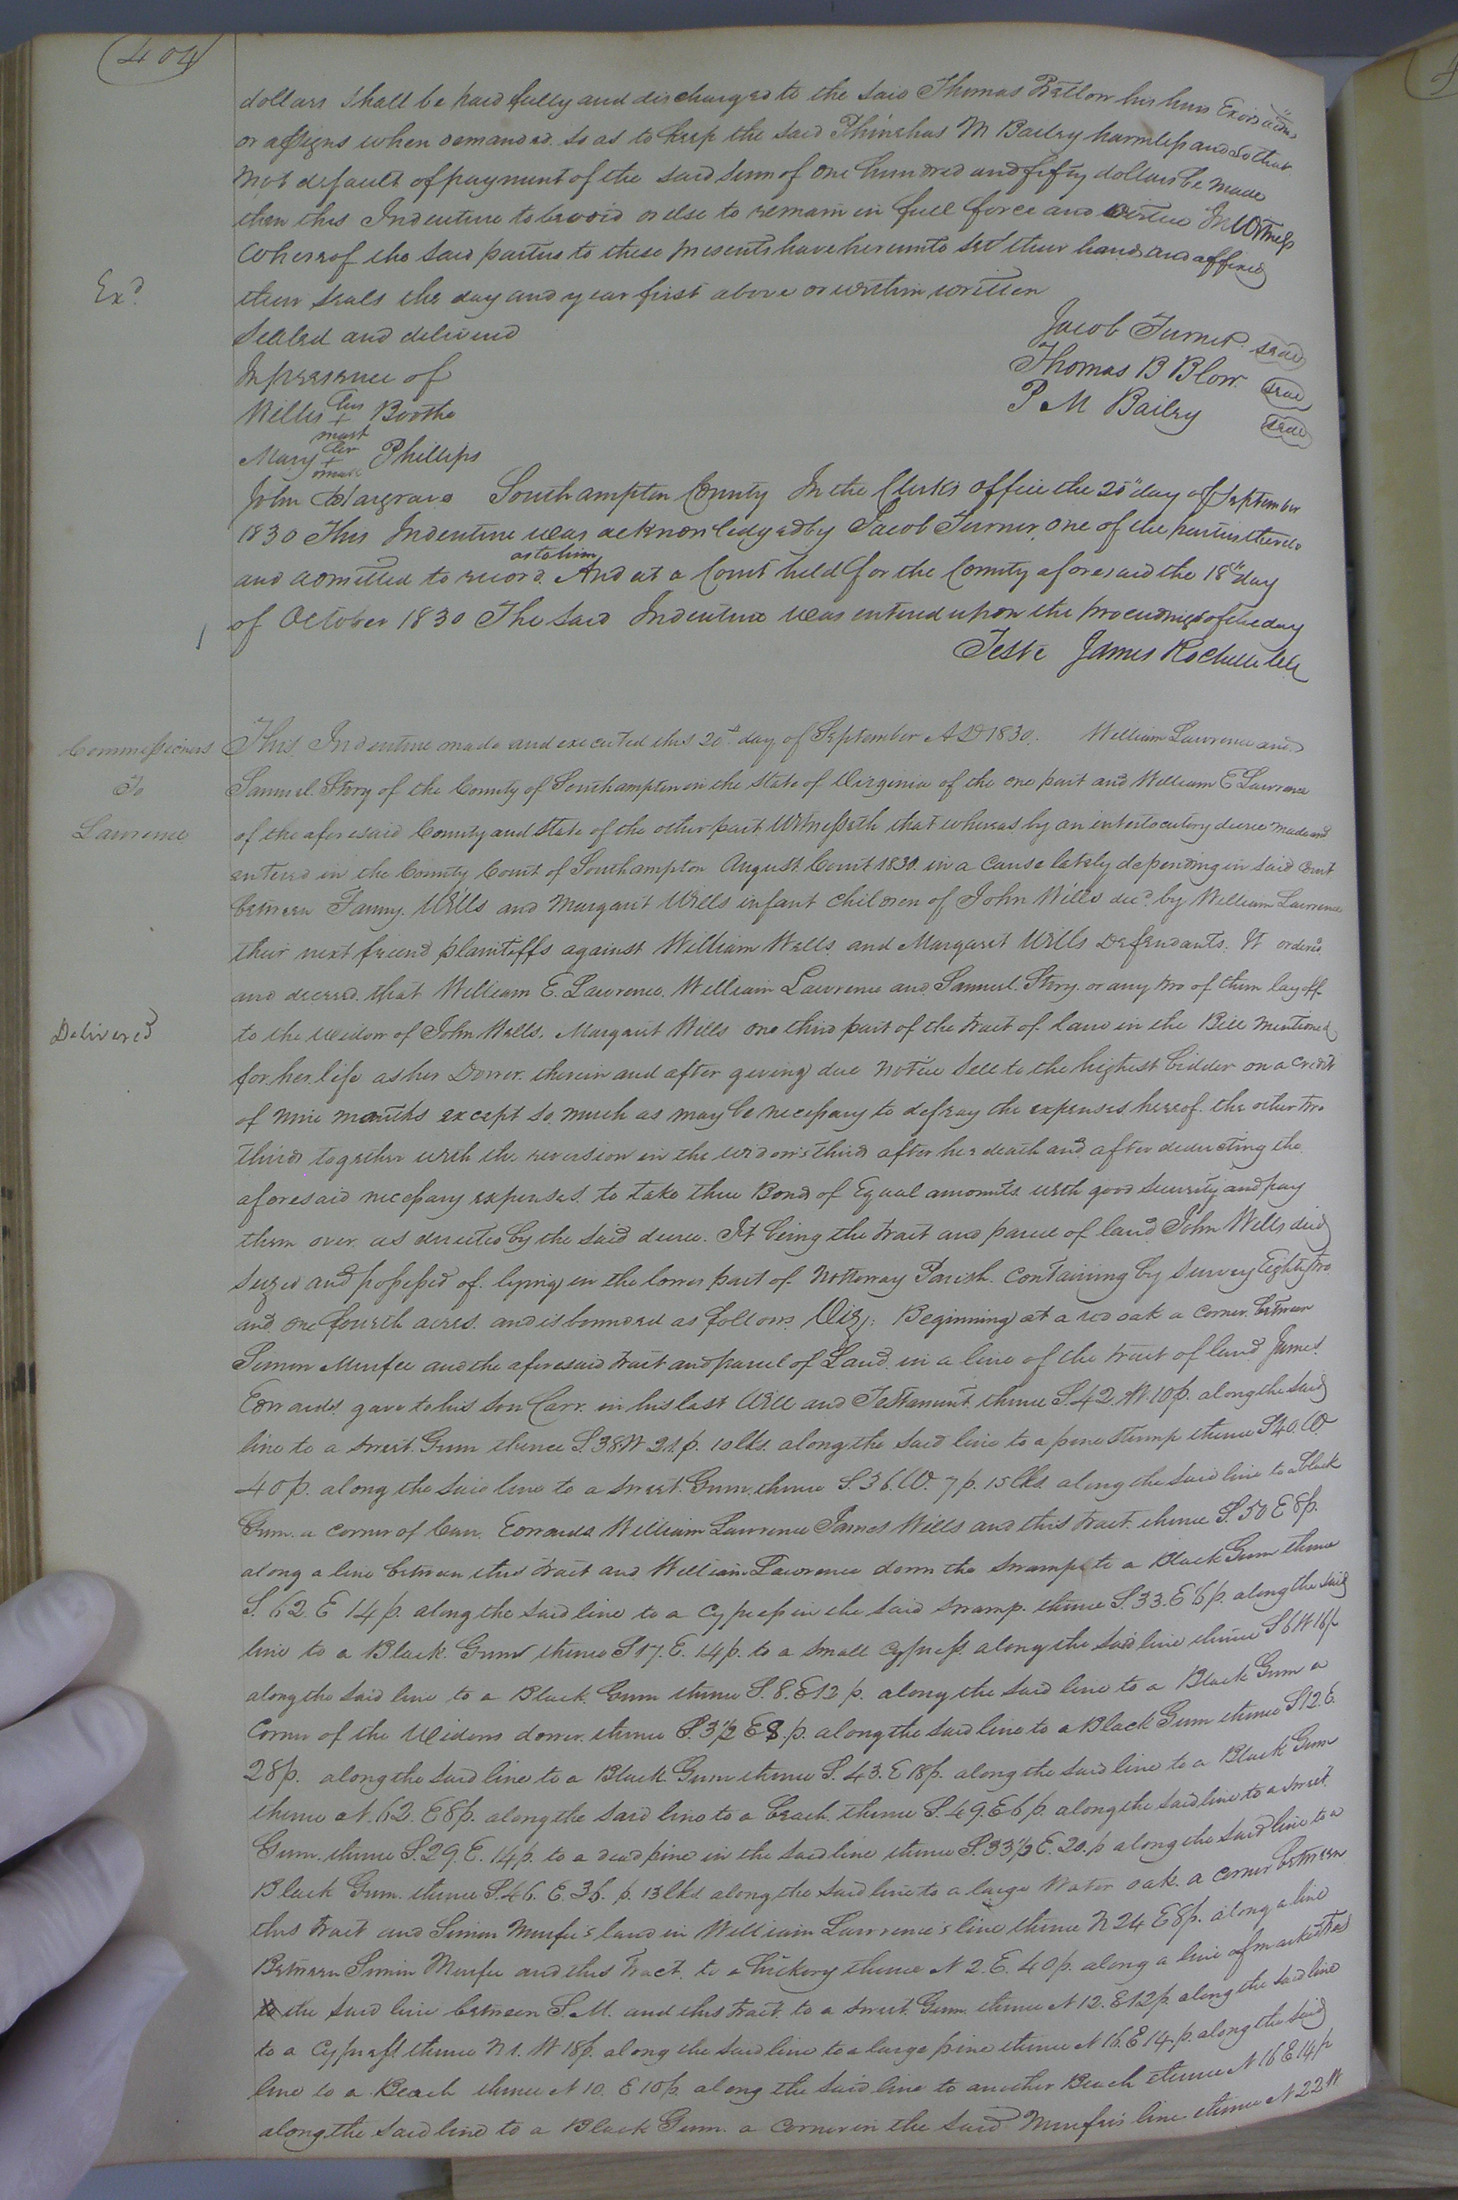 404
dollars shall be paid fully and discharged to the said Thomas Retlow his heirs Exors adms
or assigns when demanded. so as to keep the said Phinehas M Bailey harmless and so that
not default of payment of the said sum of one hundred and fifty dollars be made
then this Indenture to be void or else to remain in full force and virtue In Witness
Whereof the said parties to these presents have hereunto set their hands and affixed
Exd.
their seals the day and year first above or within written
Sealed and delivered
In presence of
Jacob Turner seal
Thomas B Blow seal
P M Bailey seal
Willis his + mark Boothe
Mary her + mark Phillips
John Hargrave Southampton County In the Clerks office the 20th day of September
1830 This Indenture was acknowledged by Jacob Turner, one of the parties thereto
and admitted to record as to him And at a Court held for the County aforesaid the 18th day
of October 1830 The said Indenture was entered upon the proceedings of the day
Teste James Rochelle Clk
Commissioners
To
Lawrence
This Indenture made and executed this 20th day of September A D 1830. William Lawrence and
Samuel Story of the County of Southampton in the State of Virginia of the one part and William E Lawrence
of the aforesaid County and State of the other part Witnesseth that whereas by an interlocutory decree made and
entered in the County Court of Southampton August Court 1830. in a cause lately depending in said Court
between Fanny Wills and Margaret Wills infant children of John Wills decd. by William Lawrence
their next friend plaintiffs against William Wells and Margaret Wills Defendants. It ordered
and decreed that William E. Lawrence, William Lawrence and Samuel Story or any two of them lay off
Delivered
to the widow of John Wells, Margaret Wells one third part of the tract of land in the Bill mentioned
for her life as her Dower therein and after giving due notice sell to the highest bidder on a credit
of nine months except so much as may be necessary to defray the expenses hereof. the other two
thirds together with the reversion in the widow's third after her death and after deducting the
aforesaid necessary expenses to take three Bonds of Equal amounts with good security and pay
them over as directed by the said decree. It being the tract and parcel of land John Wells died
seized and possessed of lying in the lower part of Nottoway Parish Containing by Survey Eighty two
and one fourth acres. and is bounded as follows (Viz): Beginning at a red oak a corner between
Simon Murfee and the aforesaid tract and parcel of Land in a line of the tract of land James
Edwards gave to his son Carr in his last Will and Testament thence S. 42 W. 10 p. along the said
line to a sweet Gum thence S. 38 W 21. p. 10 lks. along the said line to a pine stump thence S 40. W.
40 p. along the said line to a sweet Gum thence S. 36. W. 7 p. 15 lks along the said line to a black
Gum a corner of Carr Edwards William Lawrence James Wills and this tract thence S. 50 E 8 p.
along a line between this tract and William Lawrence down the swamp to a Black Gum thence
S. 62 E 14 p. along the said line to a Cypress in the said swamp thence S. 33. E 6 p. along the said
line to a Black Gum thence S 17. E. 14 p. to a small Cypress along the said line thence S 6 W 16 p
along the said line to a Black Gum thence S. 8. E 12 p. along the said line to a Black Gum a
Corner of the Widows dower thence S. 3 1/2 E 8. p. along the said line to a Black Gum thence S 12. E.
28 p. along the said line to a Black Gum thence S. 43. E 18 p. along the said line to a Black Gum
thence N. 62. E 8 p. along the said line to a Beach thence S. 49. E 6 p. along the said line to a sweet
Gum thence S. 29. E. 14 p. to a dead pine in the said line thence S. 33 1/2 E. 20. p along the said line to a
Black Gum thence S. 46. E. 36. p. 13 lks along the said line to a large Water oak a corner between
this tract and Simon Murfee's land in William Lawrence's line thence N 24 E 8 p. along a line
Between Simon Murfee and this Tract to a hickory thence N 2. E. 40 p. along a line of marked trees
the said line between S. M. and this tract to a sweet Gum thence N 12. E 12 p along the said line
to a Cypress thence N 1. W 18 p. along the said line to a large pine thence N 16. E 14 p. along the said
line to a Beach thence N 10. E 10 p. along the said line to another Beach thence N 16 E 14 p
along the said line to a Black Gum a corner in the said Murfee's line thence N 22 W